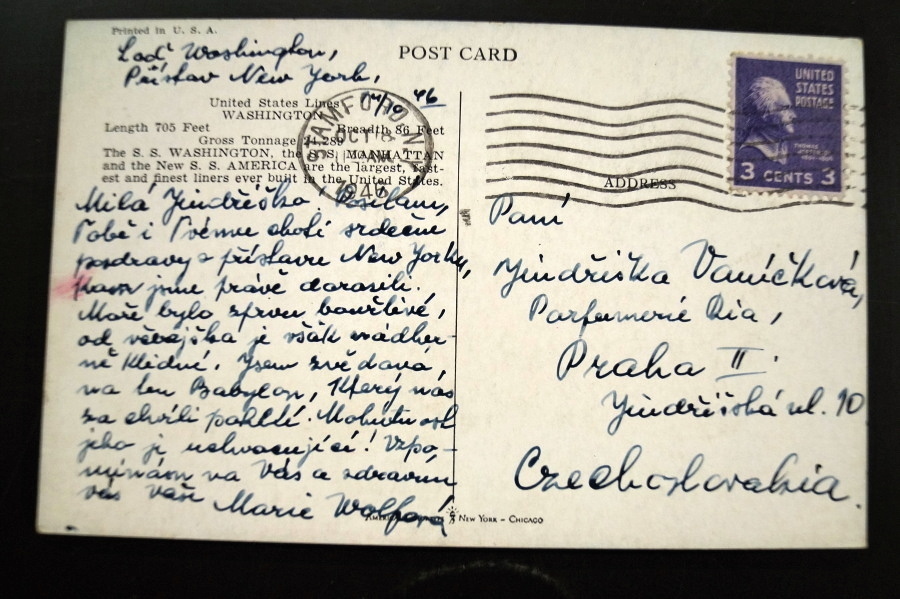 Printed in U. S. A.
POST CARD
Loď Washington,
Přístav New York,
14/10 46
United States Lines
WASHINGTON
Length 705 Feet Breadth 86 Feet
Gross Tonnage 24,289
The S. S. WASHINGTON, the S. S. MANHATTAN
and the New S. S. AMERICA are the largest, fast-
est and finest liners ever built in the United States.
STAMFORD
OCT 18
AM
1946
Milá Jindřiško. Posílám,
Tobě i Tvému choti srdečné
pozdravy z přístavu New Yorku,
kam jsme právě dorazili.
Moře bylo zprvu bouřlivé,
od včerejška je však nádher-
ně klidné. Jsem zvědavá,
na ten Babylon, který nás
za chvíli pohltí. Mohutnost
jeho je uchvacující! Vzpo-
mínám na Vás a zdravím
vás vaše Marie Wolfová
UNITED
STATES
POSTAGE
3 CENTS 3
ADDRESS
Paní
Jindřiška Vaníčková,
Parfumerie Ria,
Praha II.
Jindřišská ul. 10
Czechoslovakia.
NEW YORK - CHICAGO